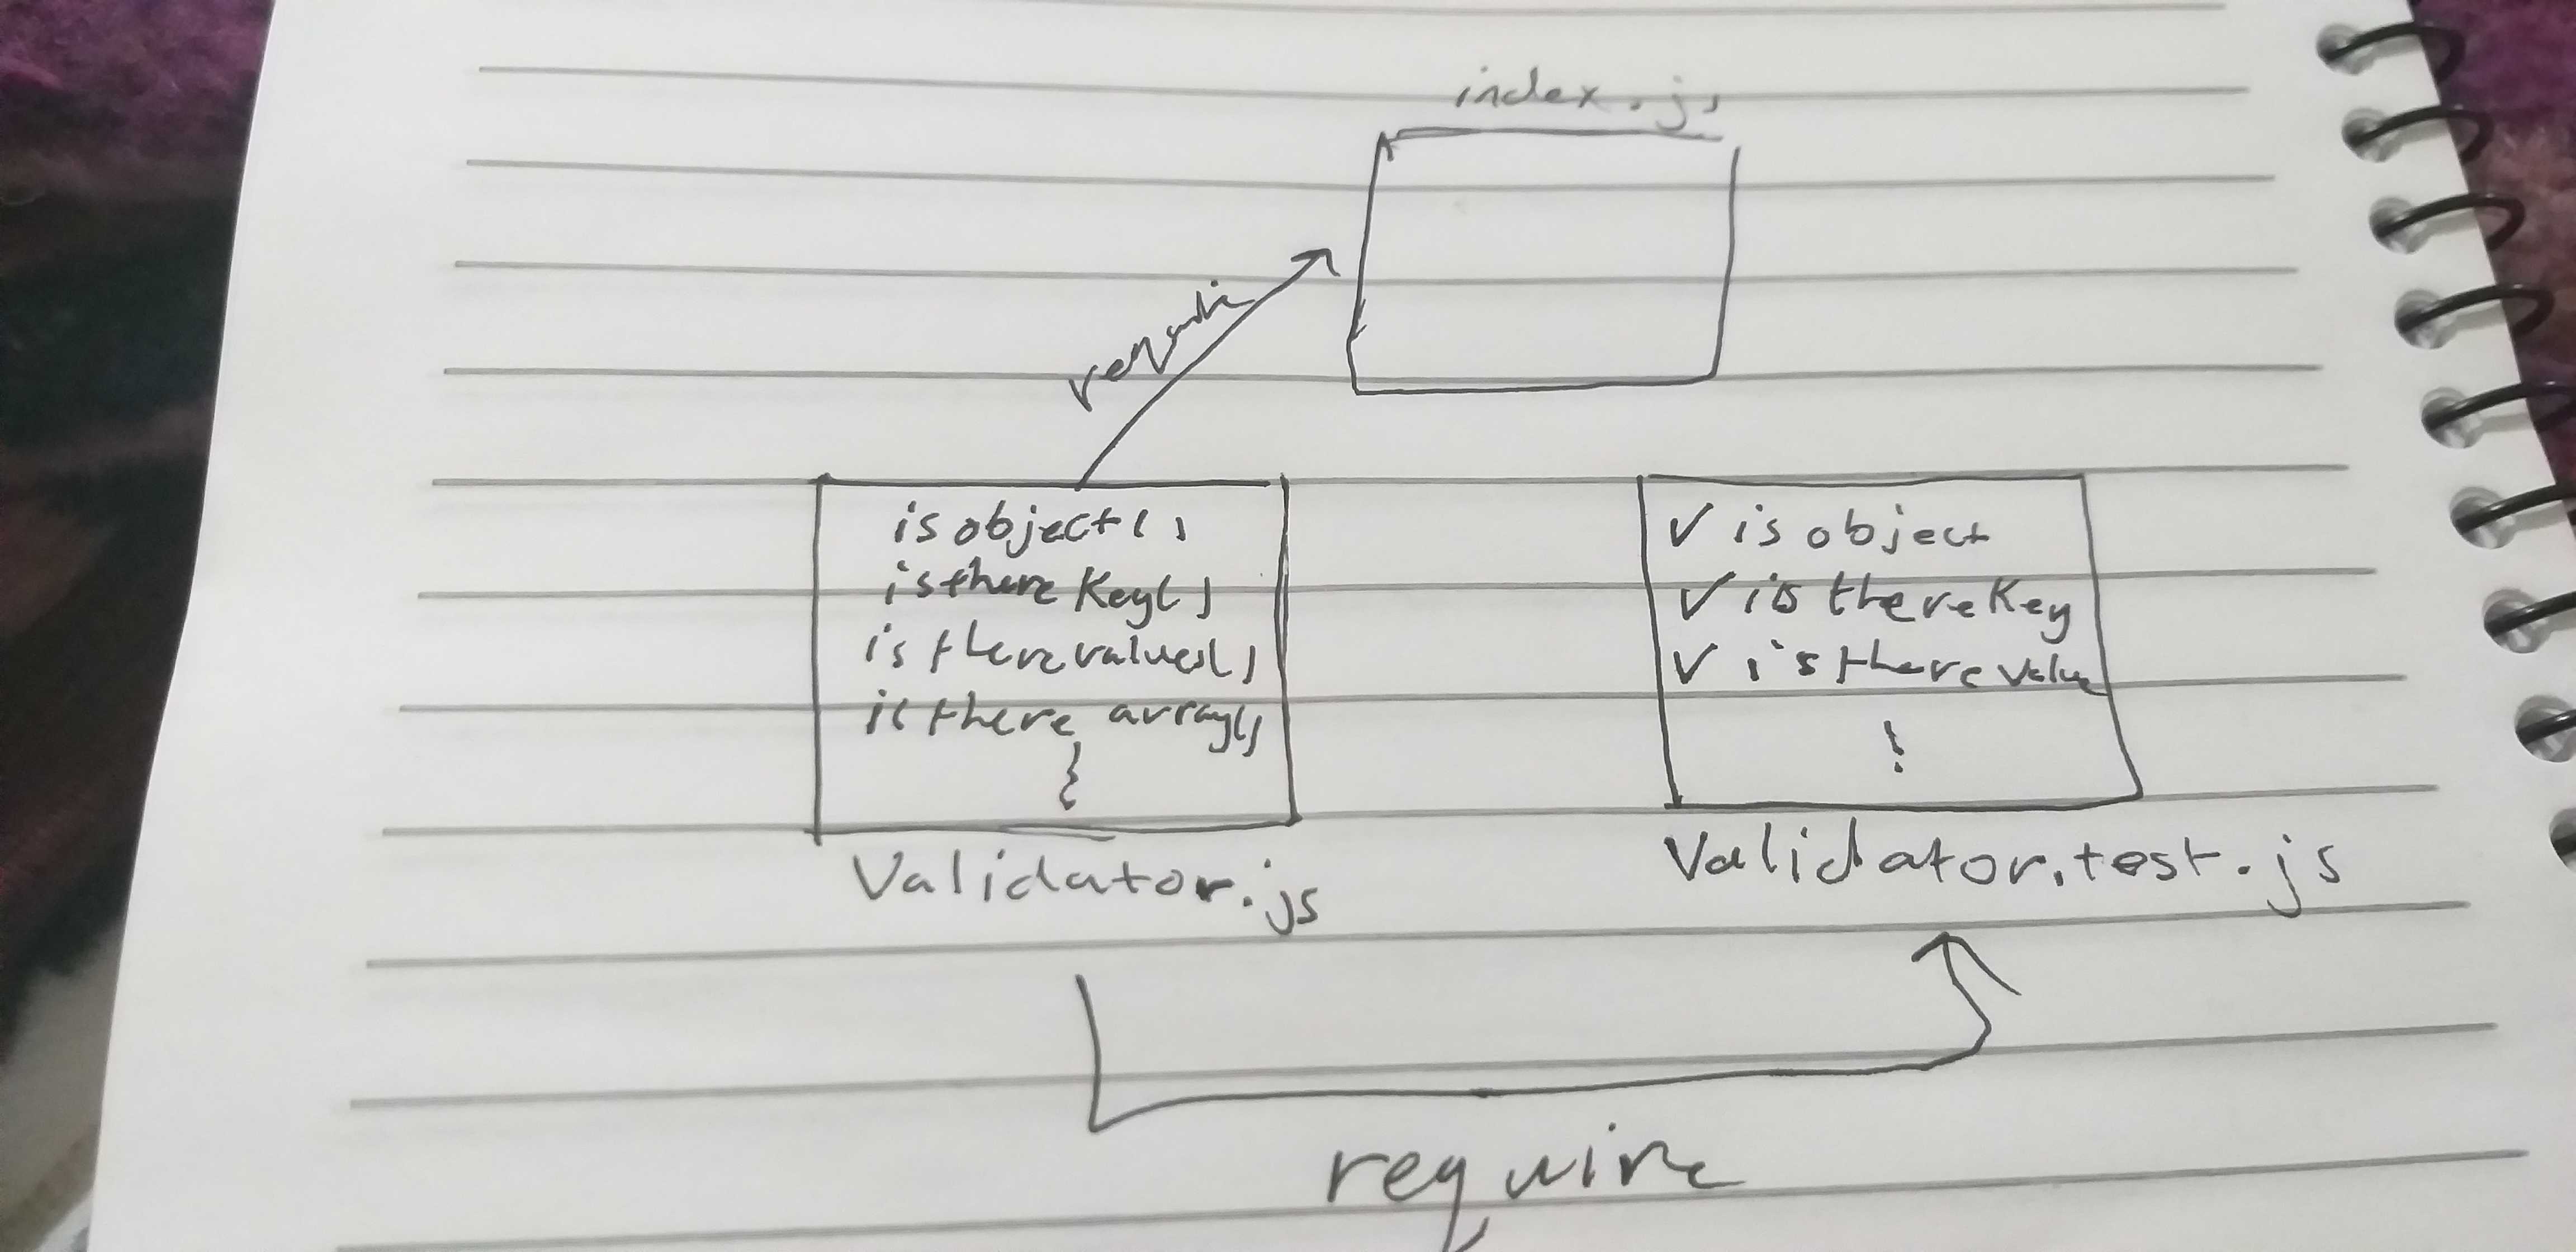 index.js
require
isobject()
isthereKey()
is therevalues()
is there array()
✓ is object
✓ is thereKey
✓ is there value
Validator.js
Validator.test.js
require